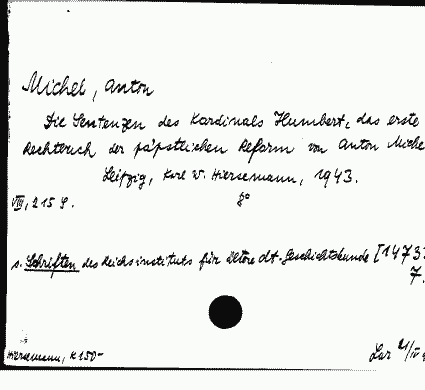 Michel, Anton
Die Sentenzen des Kardinals Humbert, das erste
Rechtbuch der päpstlichen Reform von Anton Miche
Leipzig, Karl W. Hiersemann, 1943.
VIII, 215 S. 8°
s. Schriften des Reichsinstituts für ältere dt. Geschichtskunde [1473:
7.
Hiersemann, K 150-
21/IV